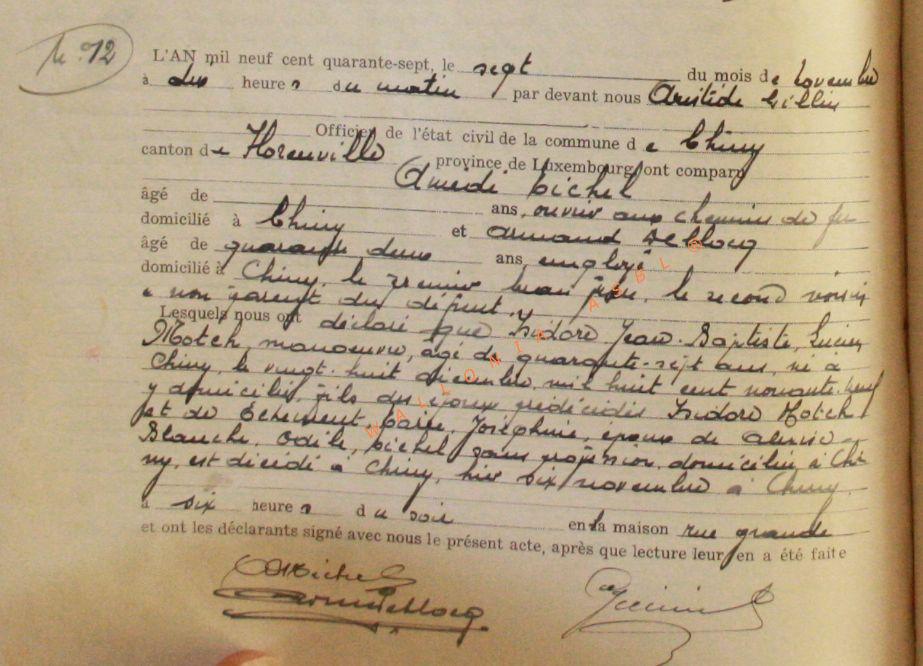 N° 72
L'AN mil neuf cent quarante-sept, le sept du mois de novembre
à dix heures du matin par devant nous Aristide
Officier de l'état civil de la commune de Chiny
canton de Florenville province de Luxembourg ont comparu
Amédé Michel
âgé de ans, ouvrier aux chemins de fer
domicilié à Chiny et Armand Deblocq
âgé de quarante deux ans employé
domicilié à Chiny, le premier beau frère, le second voisin
e non parent du défunt.
Lesquels nous ont déclaré que Isidore, Jean-Baptiste, Lucien
Motch, manoeuvre, âgé de quarante-sept ans, né à
Chiny, le vingt-huit décembre, mil huit cent nonante-neuf
y domicilié, fils des époux prédécédés Isidore Motch
et de Marie, Joséphine, époux de
Blanche, Odile, Michel sans profession, domiciliée à Chi-
ny, est décédé à Chiny, hier six novembre à Chiny
à six heures du soir en la maison rue grande
et ont les déclarants signé avec nous le présent acte, après que lecture leur en a été faite
AMichel
ArmDeblocq
WALLONIA ASBL ©